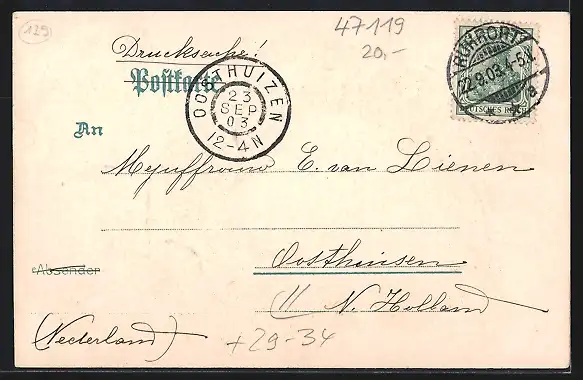 129
47119
20,-
Drucksache!
Postkarte
RUHRORT
22.9.03.4-5N.
* * a
DEUTSCHES REICH
OOSTHUIZEN
23
SEP
03
12-4N
An
Mejuffrouw E. van Lienen
Oosthuisen
Absender
// N. Holland
(Nederland)
+29-34